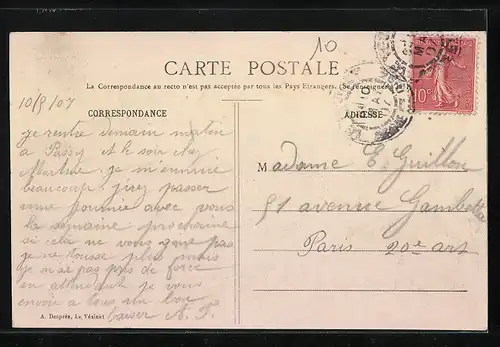 10
CARTE POSTALE
La Correspondance au recto n'est pas acceptée par tous les Pays Etrangers. (Se renseigner
CORRESPONDANCE
ADRESSE
10/8/07
je rentre demain matin
à Passy et le soir chez
je m'ennuie
beaucoup. passer
une journée avec vous
la semaine prochaine
si cela ne vous gêne pas
je ne tousse plus mais
je n'ai pas pris de force
en attendant je vous
envoie a tous un bon
baiser A. P.
A. Desprès, Le Vésinet
Madame E. Guillon
51 avenue Gambetta
Paris 20e arr
10c